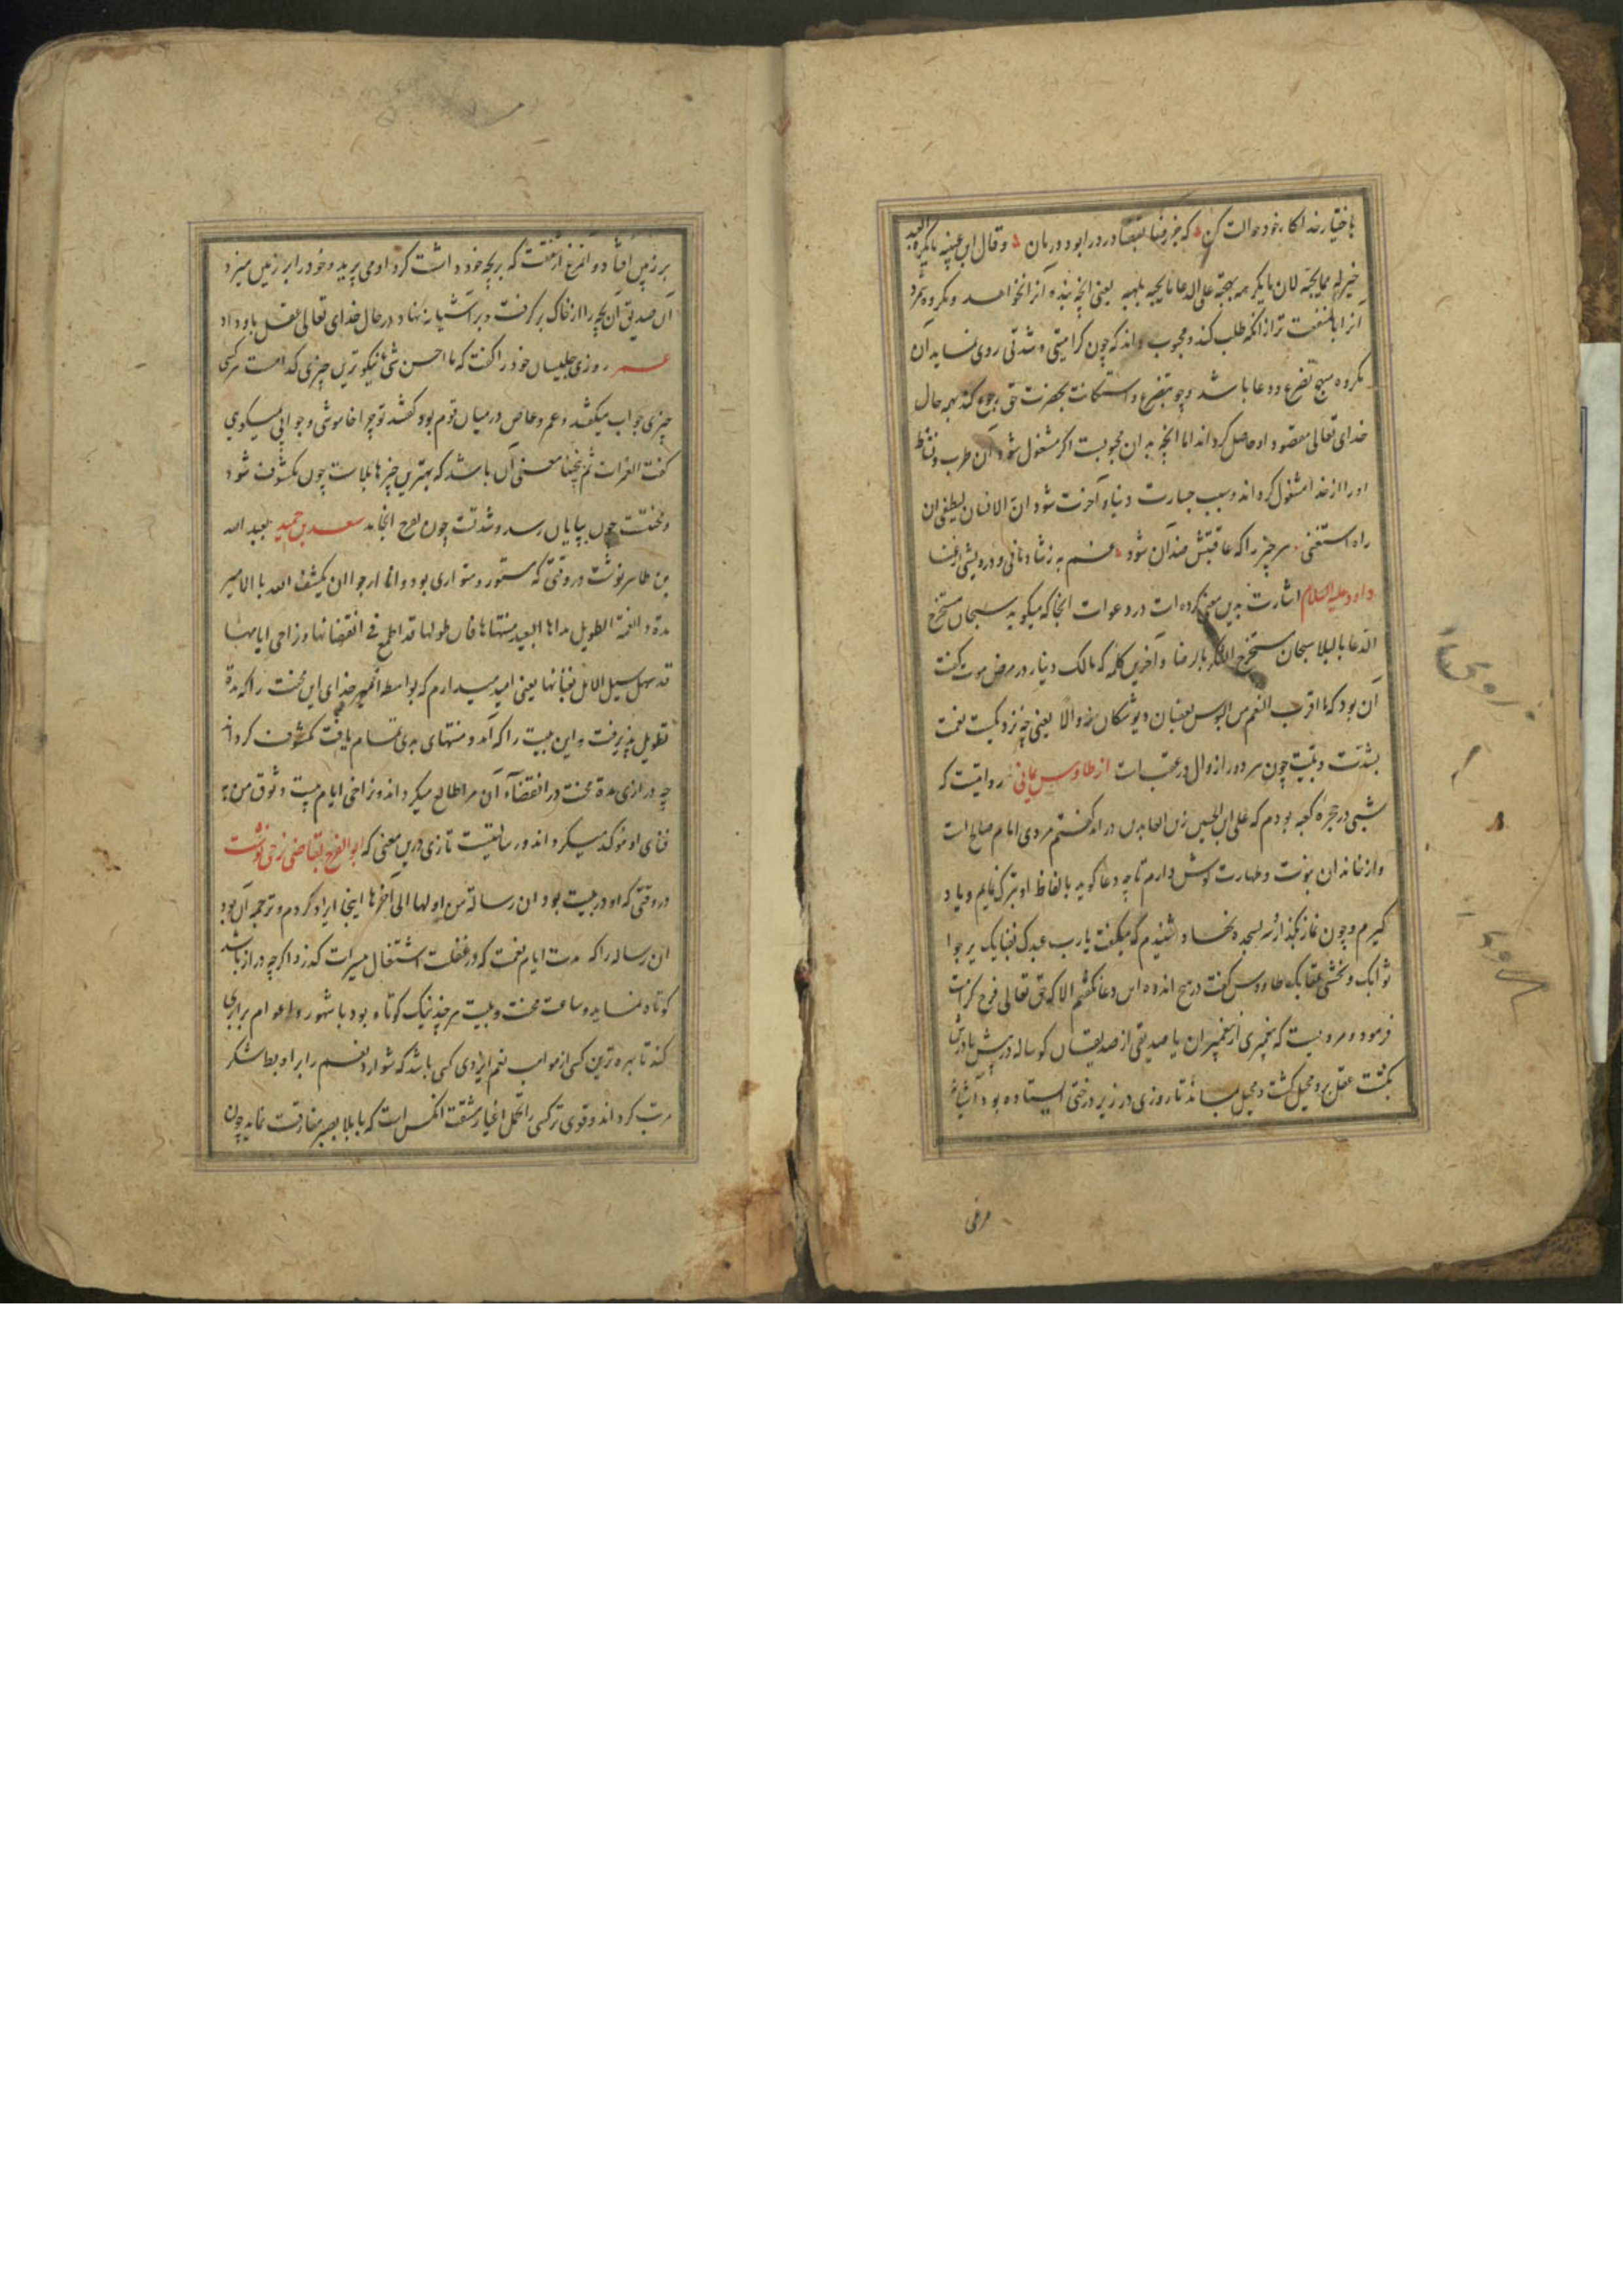 باختیار خدا کار خود حوالت کن که جز رضا بقضا درد را بود درمان وقال ابن عیینه مایکره العبد
خیر له مما یحبه لان مایکرهه یهیجه علی الدعا و مایحبه یلهیه یعنی انچه بنده آنرا نخواهد و مکروه شمرد
آنرا با منفعت تر از انکه طلب کند و محبوب داند که چون کراهیتی و شدتی روی نماید آن
مکروه مهیج تضرع و دعا باشد و چو بتضرع و استکانت بحضرت حق رجوع کند بهمه حال
خدای تعالی مقصود او حاصل کرداند اما انچه به ان محبوبست اکر مشغول شود آن طرب و نشاط
او را از خدا مشغول کرداند و سبب جسارت دنیا و آخرت شود ان الانسان لیطغی ان
راه استغنی هر چیز را که عاقبتش ضد آن شود غم به ز شادمانی و درویشی از غنا
داود علیه السلام اشارت بدین معنی کرده است در دعوات انجا که میکوید سبحان مستخرج
الدعا بالبلا سبحان مستخرج الشکر بالرضا و آخرین کلمه که مالک دینار در مرض موت کفت
آن بود که ما اقرب النعم من البوس یعقبان و یوشکان زوالا یعنی چه نزدیکست نعمت
بشدت و بلیت چون هر دو را زوال در عقبست از طاوس یمانی روایتست که
شبی در حجره کعبه بودم که علی ابن الحسین زین العابدین در امد کفتم مردی امام صالح است
و از خاندان نبوت و طهارت کوش دارم تا چه دعا کوید بالفاظ او تبرک نمایم و یاد
کیرم و چون نماز بکذارد سر بسجده نهاد و شنیدم که میکفت یارب عبدک بفنایک یرجوا
ثوابک و یخشی عقابک طاووس کفت در هیچ اندوه این دعا نکفتم الا که حق تعالی فرج کرامت
فرمود و مرویست که پیغمبری از پیغمبران یا صدیقی از صدیقان کوساله در پیش مادرش
بکشت عقل برو مخیل کشت و مخیل بماند تا روزی در زیر درختی ایستاده بود و آشیانهٔ
مرغی
بر زمین افتاد و آنمرغ از شفقت که بر بچه خود داشت کرد او می پرید و خود را بر زمین میزد
آن صدیق آن بچه را از خاک بر کرفت و بر آشیانه نهاد در حال خدای تعالی عقل باو داد
عمر روزی جلیسان خود را کفت که ما احسن شی نیکوترین چیزی کدامست هر کسی
چیزی جواب میکفتند و عمرو عاص در میان قوم بود کفتند تو چرا خاموشی و جوابی نمیکوی
کفت الغمرات ثم ینجلینا معنی آن باشد که بهترین چیزها بلاست چون مکشوف شود
و محنت چون بپایان رسد و شدت چون بفرج انجامد سعد بن حمید بعبد الله
بن طاهر نوشت در وقتی که مستور و متواری بود وانا ارجوا ان یکشف الله بالامیر
مدة و الغمة الطویل مداها البعید منتهاها فان طولها قد اطمع فی انقضائها و تراخی ایامها
قد سهل سبیل الامل لفنائها یعنی امید میدارم که بواسطه امیر خدای این محنت را که مدة
تطویل پذیرفت و این بلیت را که امد و منتهای بعدی تمام یافت مکشوف کرداند
چه درازی مدة محنت در انقضاء آن مرا طامع میکرداند و تراخی ایام بلیت وثوق من به
فنای او موکد میکرداند و رسالتیست تازی درین معنی که ابو الفرج بقاضی زحی نوشت
در وقتی که او در بلیت بود ان رساله من اولها الی آخرها اینجا ایراد کردم و ترجمه آن بود
ان رساله را که مدت ایام نعمت که در غفلت اشتغال میسرات کذرد اکرچه دراز باشد
کوتاه نماید و ساعت محنت و بلیت هر چند نیک کوتاه بود با شهور و اعوام برابری
کند تا بهره ترین کسی از مواهب نعم ایزدی کسی باشد که شوارد نعم را بر او بط شکر
مرتب کرداند و قوی ترکسی را تحمل اعبا مشقت انکس است که با بلا بصبر مفارقت نماید چون